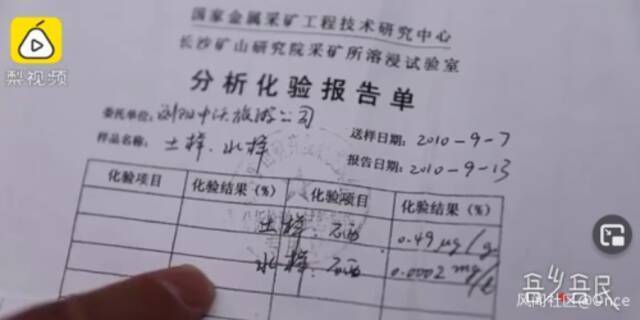 梨视频
国家金属采矿工程技术研究中心
长沙矿山研究院采矿所溶浸试验室
分析化验报告单
委托单位：浏阳中沃旅游公司
送样日期：2010-9-7
样品名称：土样、水样
报告日期：2010-9-13
化验项目 化验结果（%） 化验项目 化验结果（%）
土样：硒 0.49 μg/g
水样：硒 0.0002 mg/L
风闻社区@Once